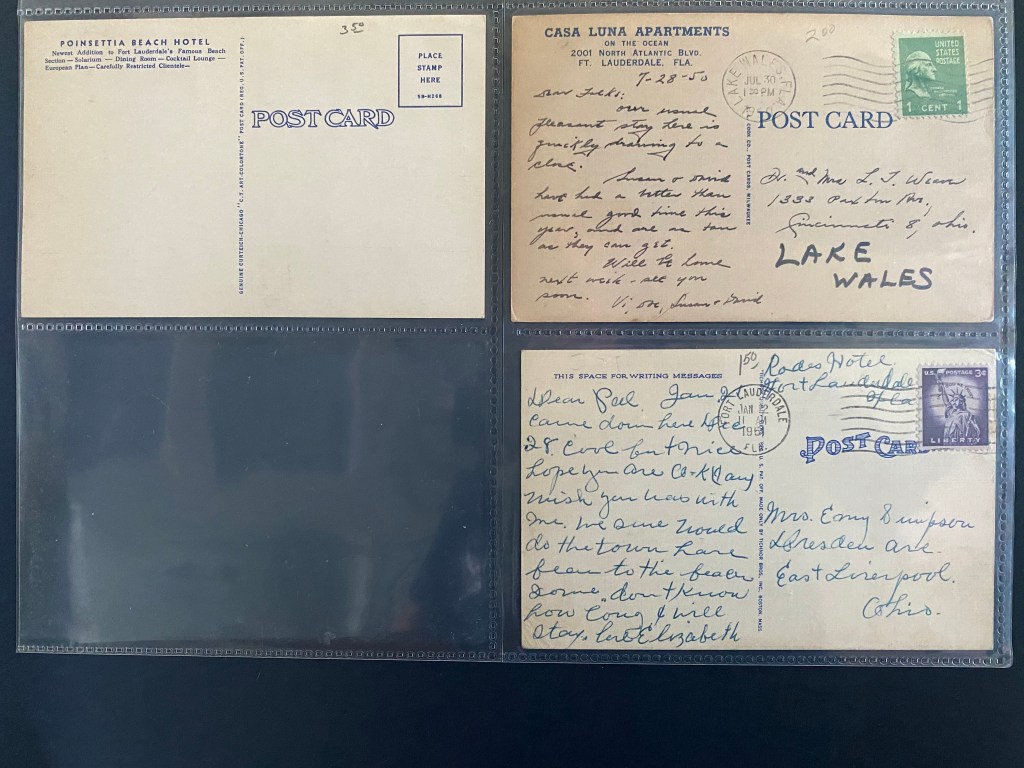 POINSETTIA BEACH HOTEL
Newest Addition to Fort Lauderdale's Famous Beach
Section — Solarium — Dining Room — Cocktail Lounge —
European Plan — Carefully Restricted Clientele —
3 50
PLACE
STAMP
HERE
9B-H268
POST CARD
GENUINE CURTEICH-CHICAGO "C.T. ART-COLORTONE" POST CARD (REG. U.S. PAT. OFF.)
CASA LUNA APARTMENTS
ON THE OCEAN
2001 NORTH ATLANTIC BLVD.
FT. LAUDERDALE, FLA.
7-28-50
Dear Folks:
Our usual
pleasant stay here is
quickly drawing to a
close.
Susan & David
have had a better than
usual good time this
year, and are as tan
as they can get.
Will be home
next week - see you
soon.
Susan & David
COOK CO., POST CARDS, MILWAUKEE
2 00
LAKE WALES, FLA.
JUL 30
1 30 PM
1950
UNITED
STATES
POSTAGE
1 CENT 1
POST CARD
Dr. and Mrs L. T. Weaver
1333 Paxton Av.,
Cincinnati 8, Ohio.
LAKE
WALES
THIS SPACE FOR WRITING MESSAGES
Dear Pal. Jan
Came down here Dec
28. Cool but nice
hope you are O-K
wish you was with
me. We sure would
do the town have
been to the beach
some, don't know
how long I will
stay. Elizabeth
MADE ONLY BY TICHNOR BROS., INC., BOSTON, MASS.
1 50
Rodes Hotel
Fort Lauderdale
Fla
FORT LAUDERDALE
JAN 22
11 AM
1961
FLA.
U.S. POSTAGE 3¢
LIBERTY
POST CARD
Mrs. Emy Simpson
Dresden ave.
East Liverpool.
Ohio.